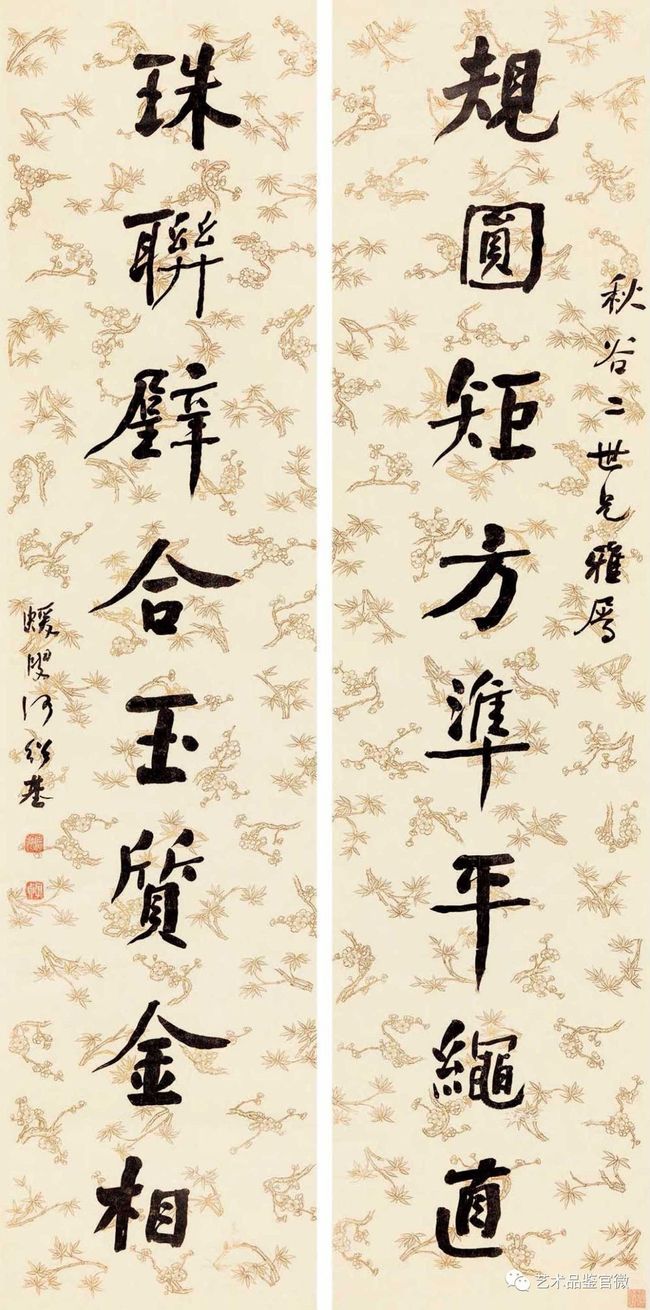 秋谷二世兄雅屬
規圓矩方準平繩直
珠聯璧合玉質金相
蝯叟何紹基
艺术品鉴官微